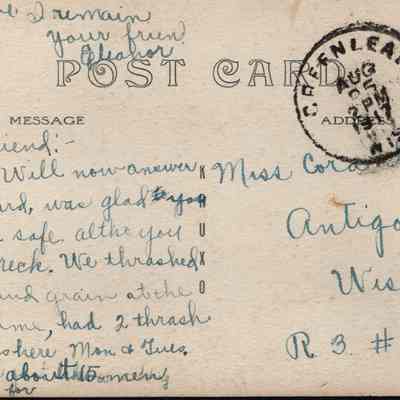 I remain
your frien
Eleanor
POST CARD
MESSAGE
ADDRE
GREENLEA
AUG
WIS
riend:-
Will now answer
ard, was glad you
safe altho you
reck. We thrashed
and grain at the
ame, had 2 thrash
here Mon & Tues.
about 15 men
for
KRUXO
Miss Cora
Antigo
Wis
R 3. #